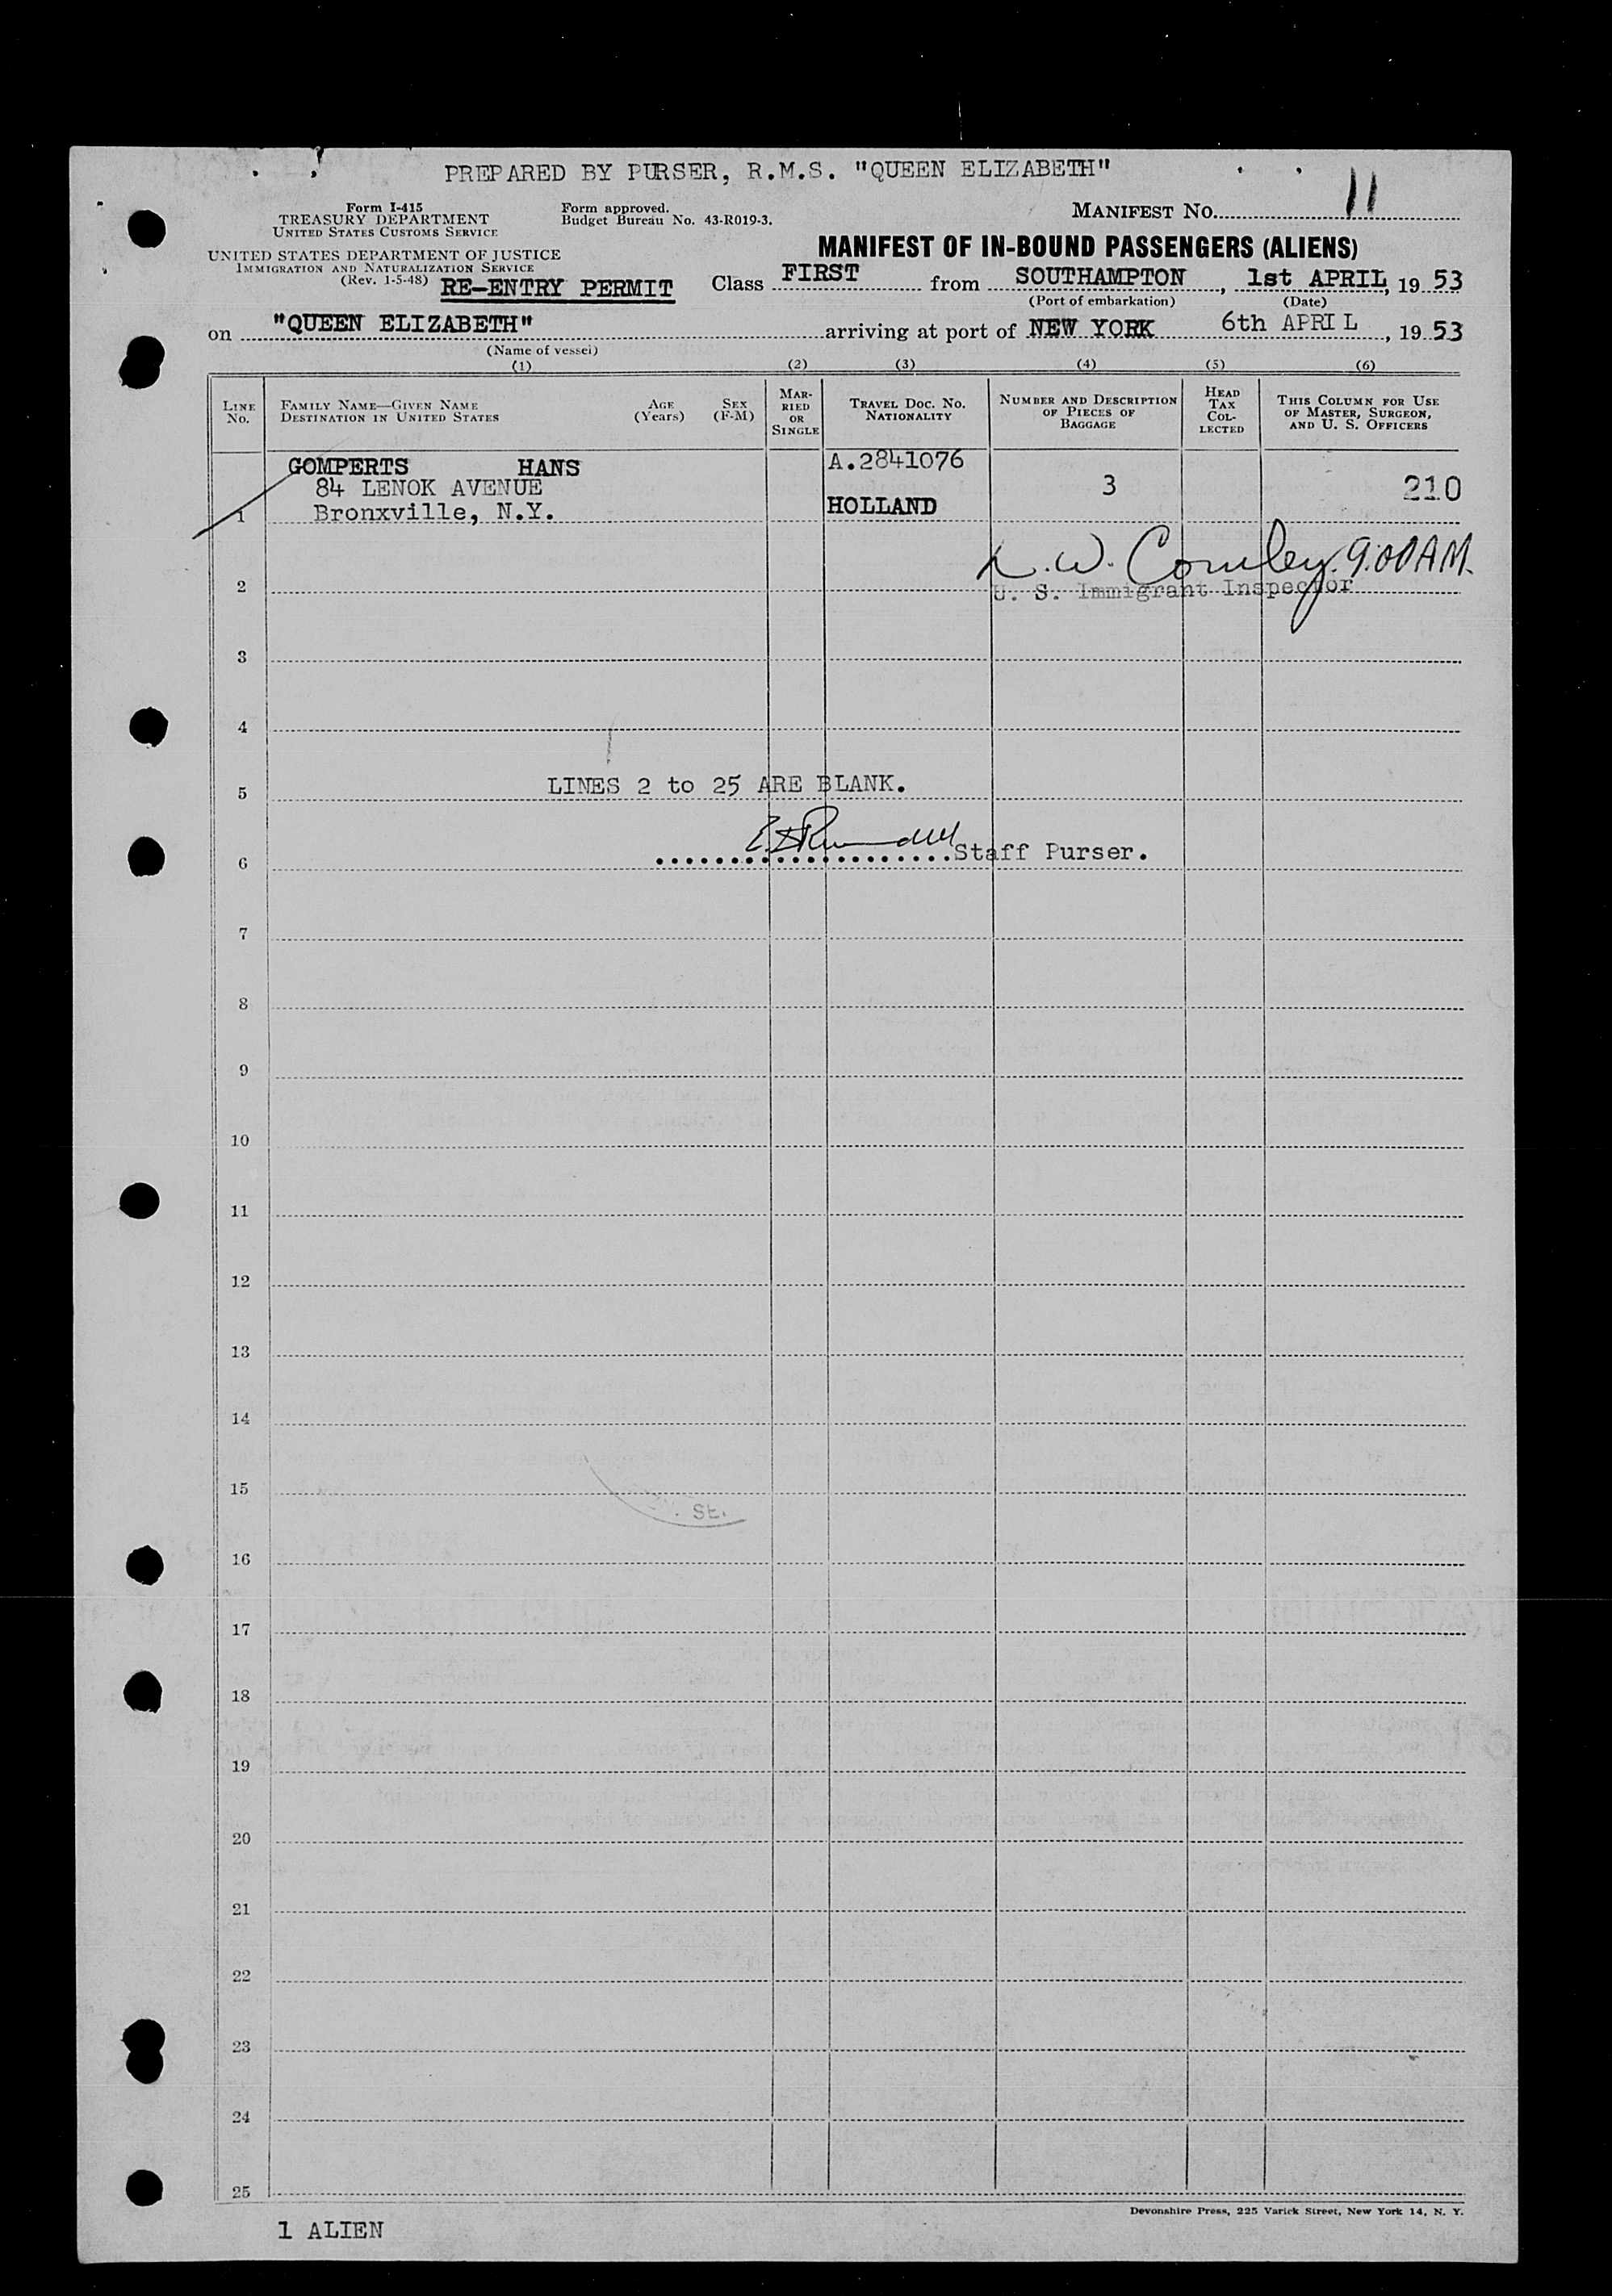 PREPARED BY PURSER, R.M.S. "QUEEN ELIZABETH"
Form I-415
TREASURY DEPARTMENT
UNITED STATES CUSTOMS SERVICE
Form approved.
Budget Bureau No. 43-R019-3.
MANIFEST NO. 11
UNITED STATES DEPARTMENT OF JUSTICE
IMMIGRATION AND NATURALIZATION SERVICE
(Rev. 1-5-48)
RE-ENTRY PERMIT
MANIFEST OF IN-BOUND PASSENGERS (ALIENS)
Class FIRST from SOUTHAMPTON, 1st APRIL, 19 53
(Port of embarkation) (Date)
on "QUEEN ELIZABETH" arriving at port of NEW YORK 6th APRIL, 19 53
(Name of vessel)
(1) (2) (3) (4) (5) (6)
LINE NO.
FAMILY NAME—GIVEN NAME
DESTINATION IN UNITED STATES
AGE (Years)
SEX (F-M)
MAR-RIED OR SINGLE
TRAVEL DOC. NO. NATIONALITY
NUMBER AND DESCRIPTION OF PIECES OF BAGGAGE
HEAD TAX COL-LECTED
THIS COLUMN FOR USE OF MASTER, SURGEON, AND U. S. OFFICERS
GOMPERTS HANS A.2841076
84 LENOK AVENUE 3 210
1 Bronxville, N.Y. HOLLAND
9:00 AM.
2 U. S. Immigrant Inspector
3
4
5 LINES 2 to 25 ARE BLANK.
6 ....................Staff Purser.
7
8
9
10
11
12
13
14
15
St.
16
17
18
19
20
21
22
23
24
25
Devonshire Press, 225 Varick Street, New York 14, N. Y.
1 ALIEN